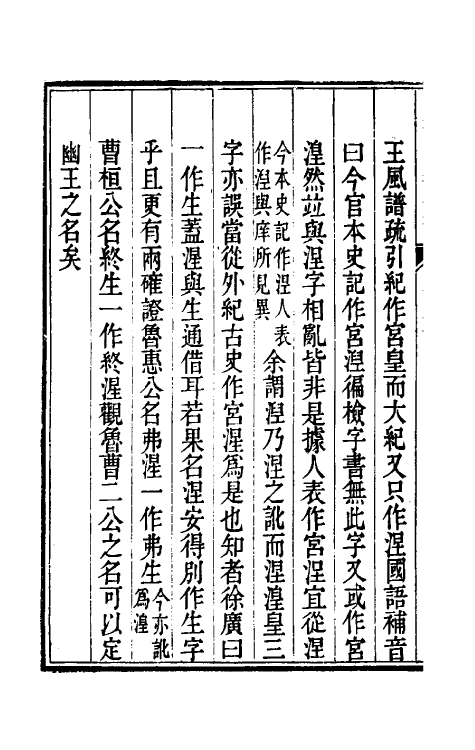 王風譜疏引紀作宮皇而大紀又只作涅國語補音
曰今官本史記作宮湼徧檢字書無此字又或作宮
湟然並與涅字相亂皆非是據人表作宮涅宜從涅
今本史記作涅人表
作湼與庠所見異
余謂湼乃涅之訛而涅湟皇三
字亦誤當從外紀古史作宮湦為是也知者徐廣曰
一作生蓋湦與生通借耳若果名涅安得別作生字
乎且更有兩確證魯惠公名弗湦一作弗生
今亦訛
為湟
曹桓公名終生一作終湦觀魯曹二公之名可以定
幽王之名矣